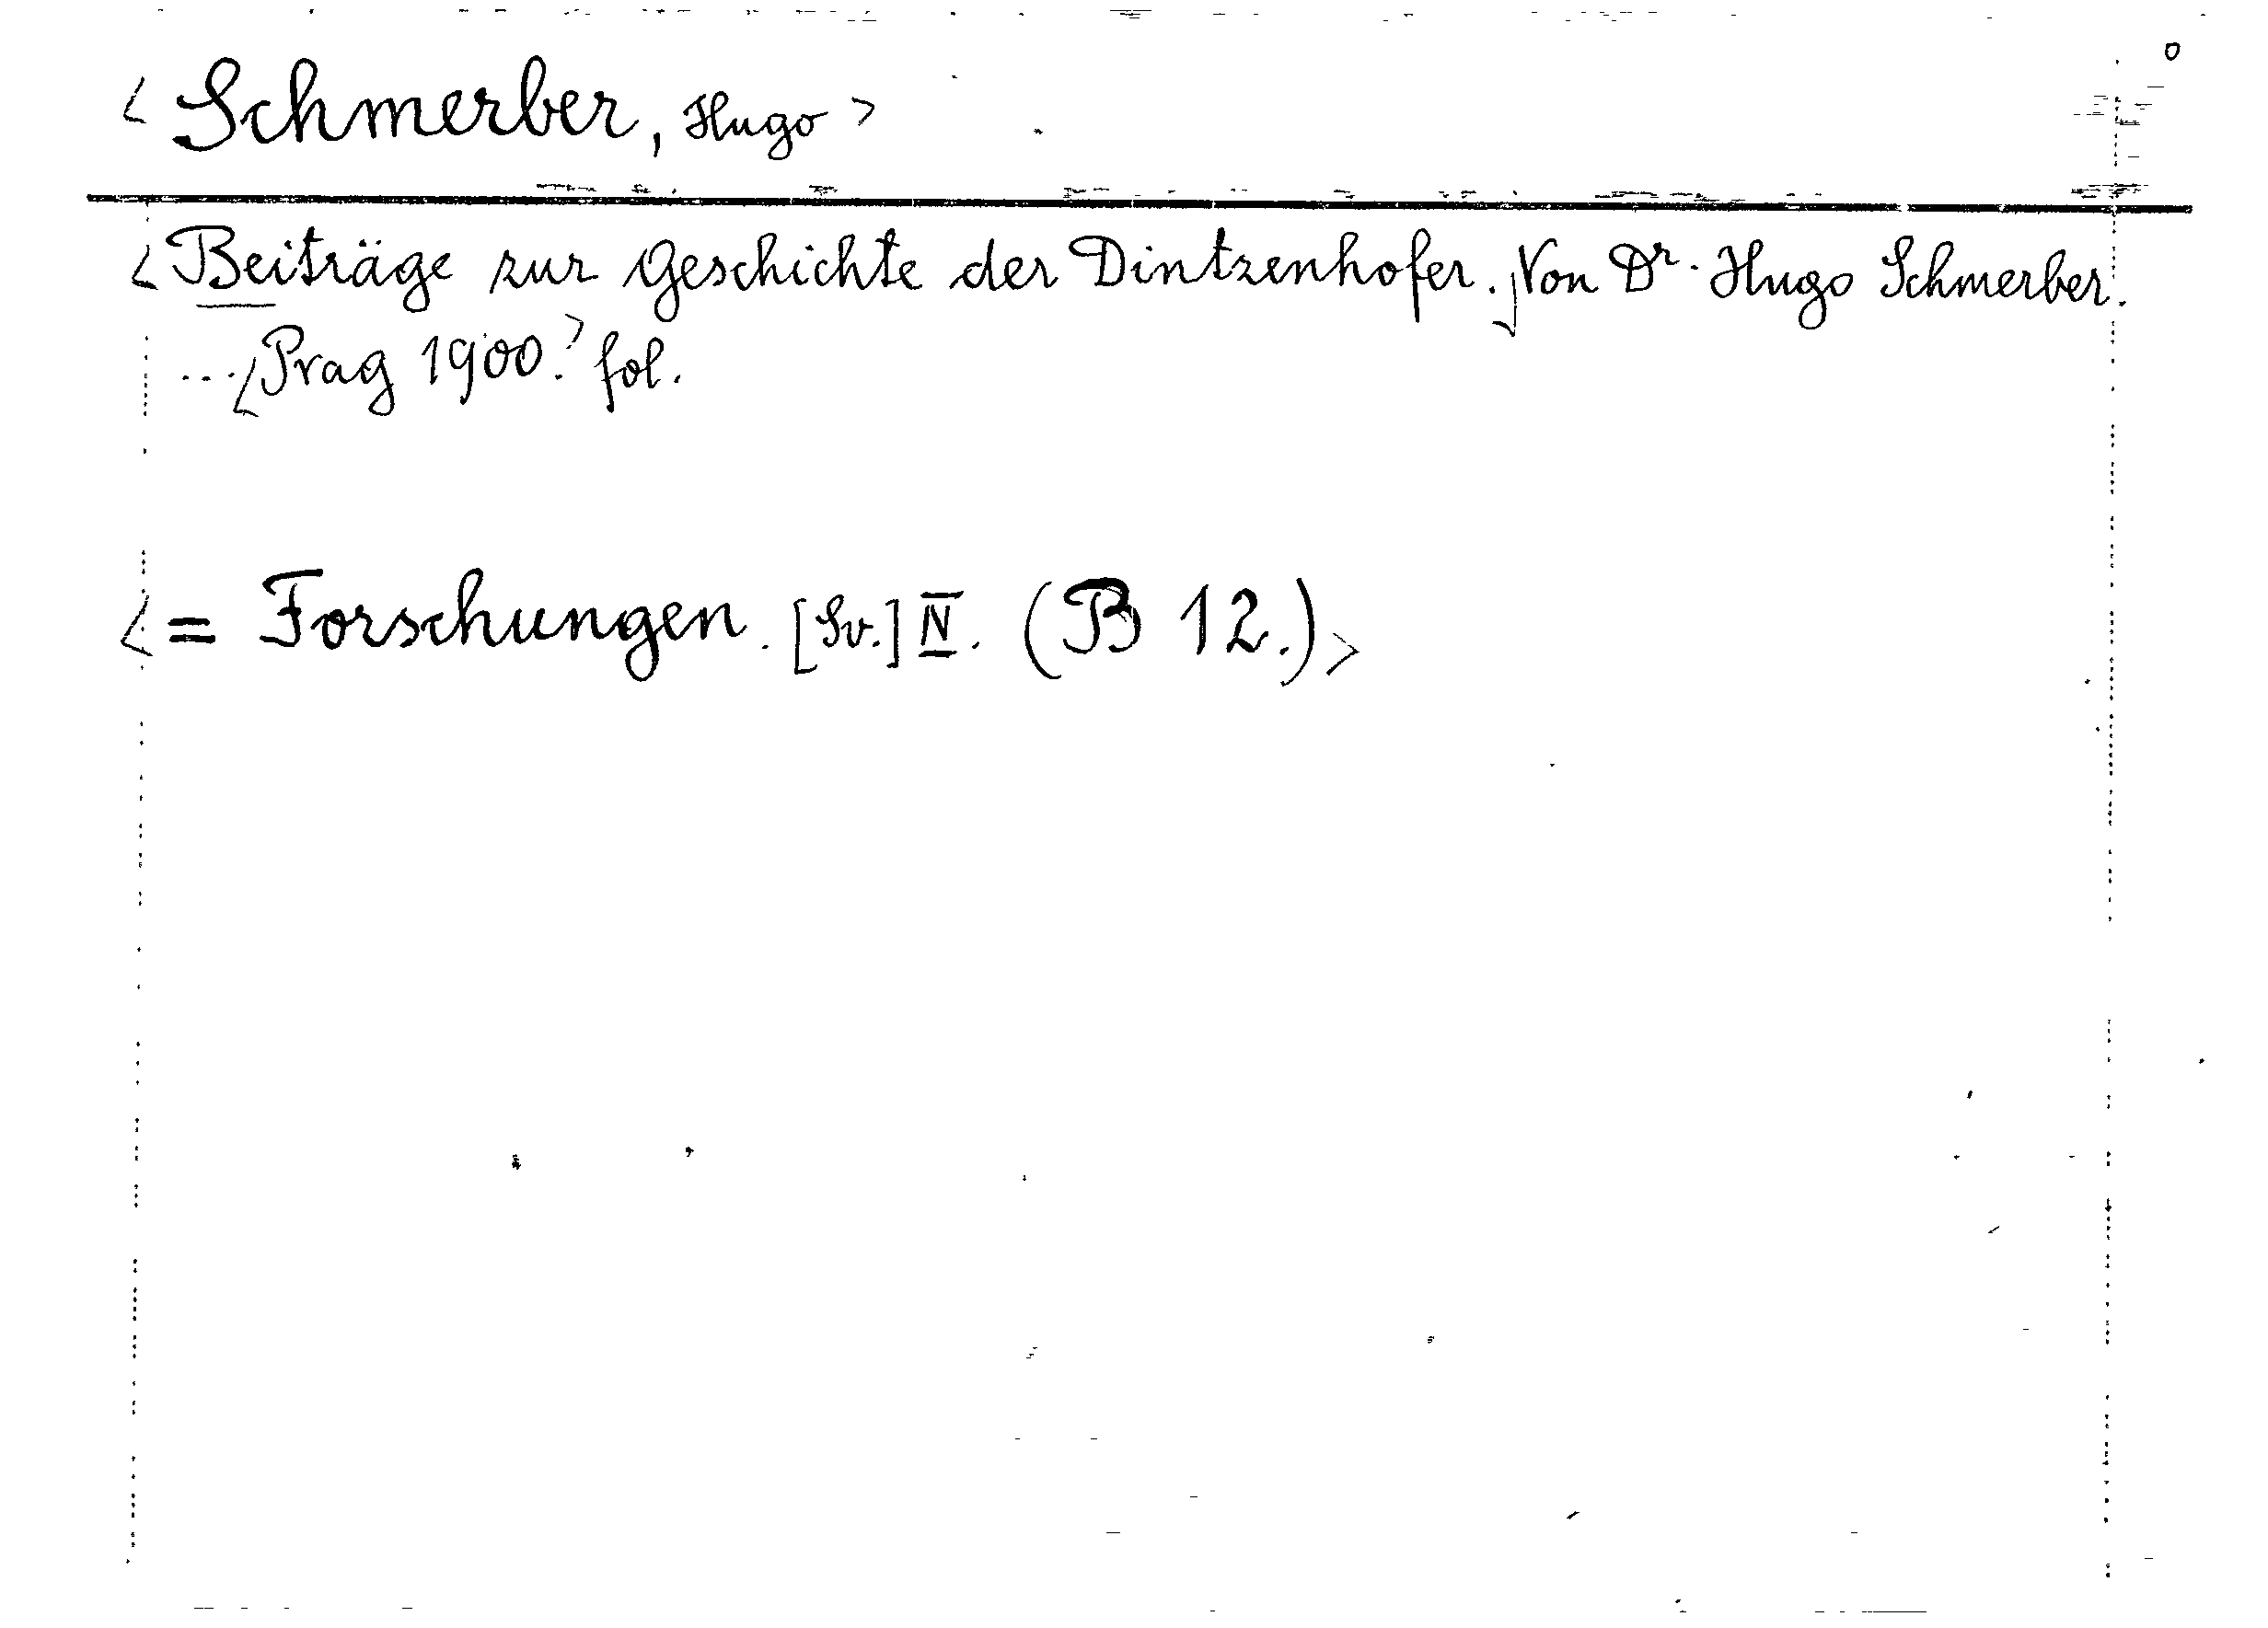 < Schmerber, Hugo >
< Beiträge zur Geschichte der Dintzenhofer. Von Dr. Hugo Schmerber.
... < Prag 1900. > fol.
< = Forschungen. [Sv.] IV. (B 12.) >